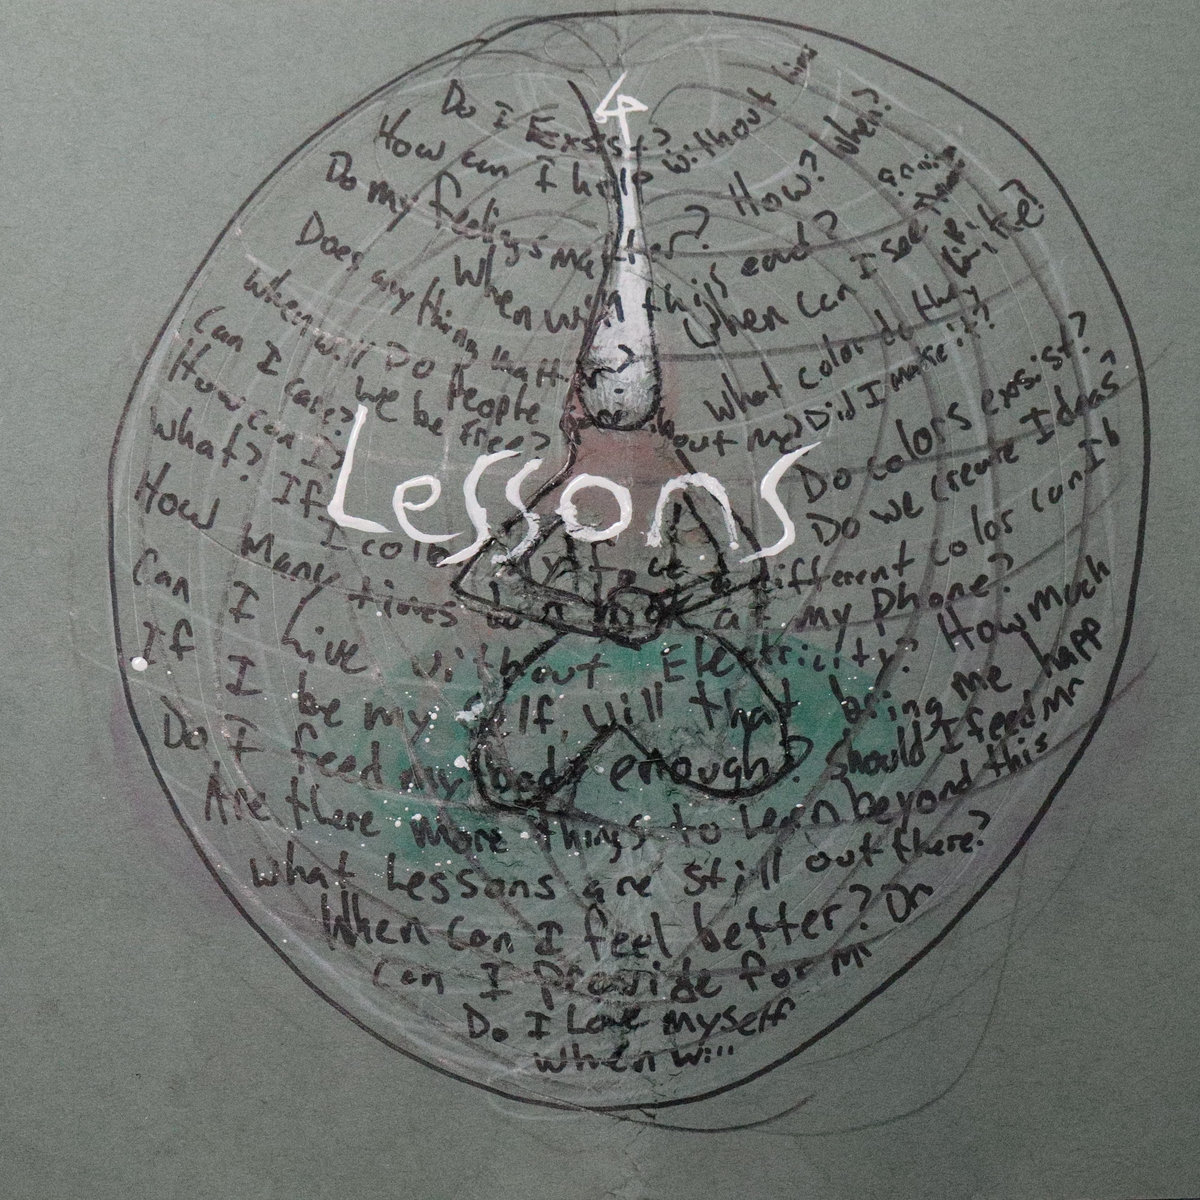 Do I Exsist?
How can I help without
Do my feelings matter? How? When?
When will this end?
Does anything matter? When can I see
When will Do People
we be free?
What color do they
Can I care? out me? Did I make it?
How can I? Do colors exsist?
What? If I Do we create Ideas
Lessons
different color can I b
How Many times at my phone?
Can I Live without Electricity? How much
If I be my self, will that bring me happ
Do I feed my body enough? Should I feed
Are there more things to Learn beyond this
What Lessons are still out there?
When can I feel better?
can I Provide for
Do I Love myself
When will